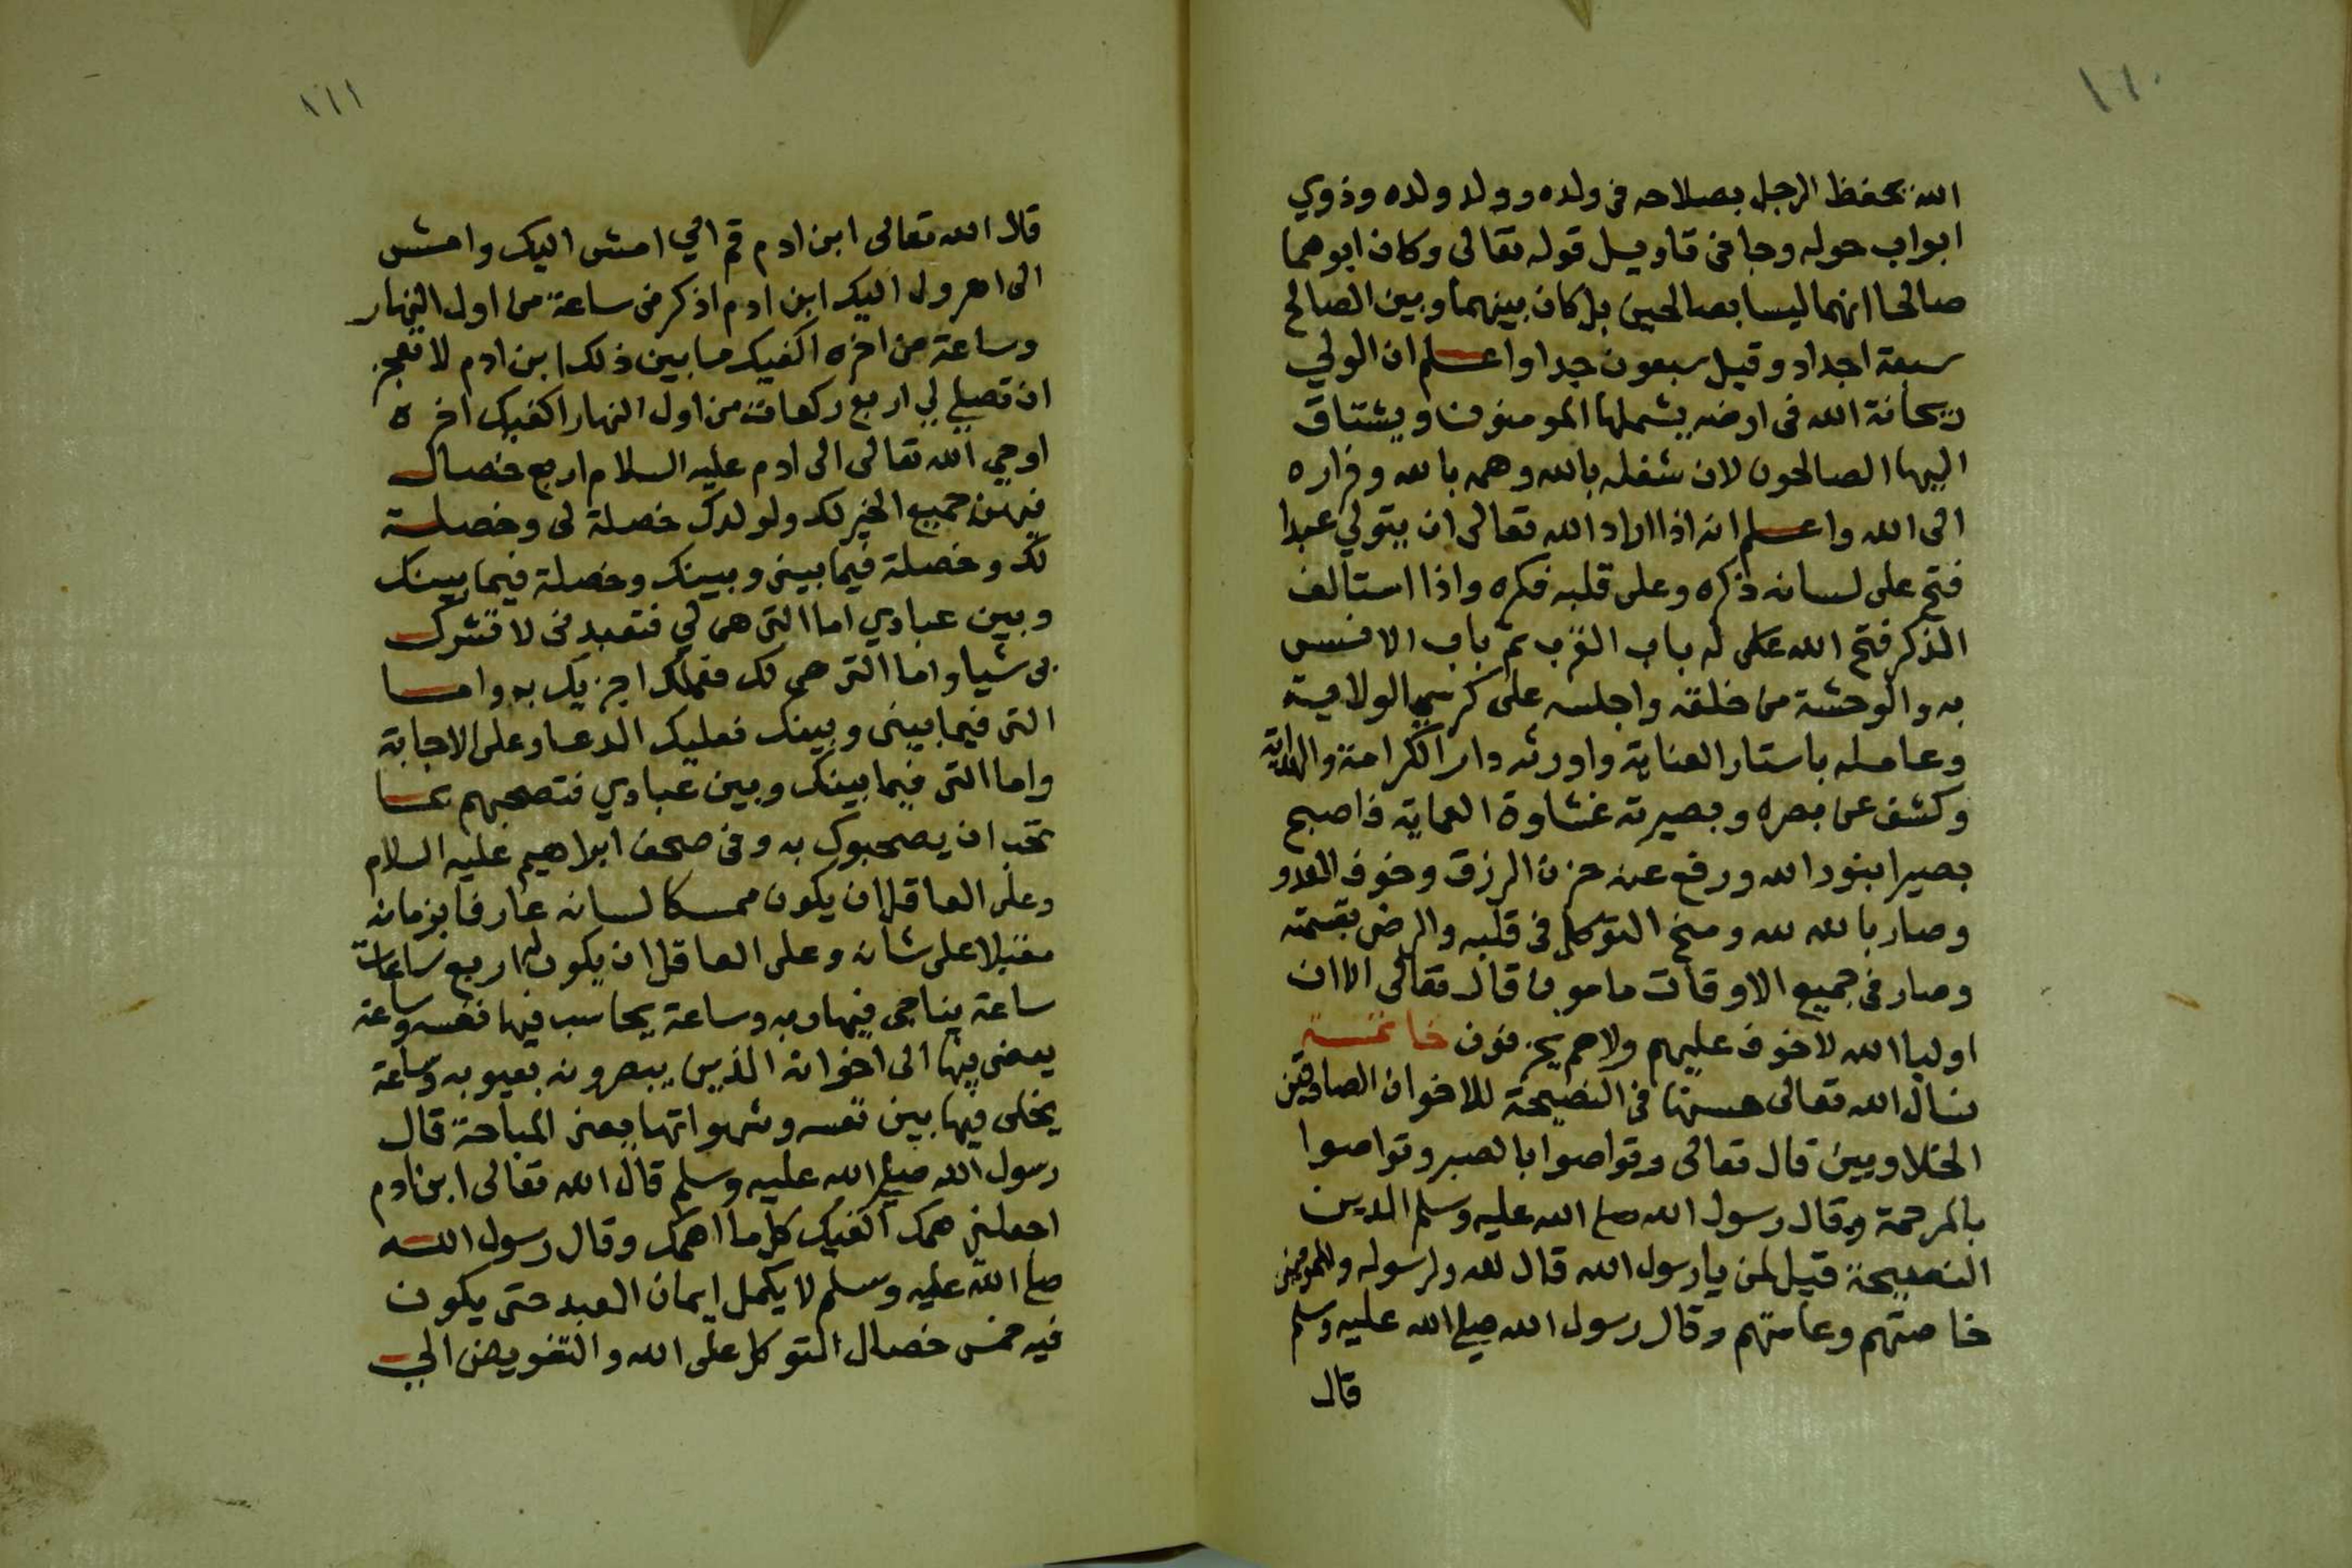 ١١٠
الله يحفظ الرجل بصلاحه فى ولده وولد ولده وذوي
ابواب حوله وجا فى تاويل قوله تعالى وكان ابوهما
صالحا انهما ليسا بصالحين بل كان بينهما وبين الصالح
سبعة اجداد وقيل سبعون جدا واعلم ان الولي
ريحانة الله فى ارضه يشملها المومنون ويشتاق
اليها الصالحون لان شغله بالله وهمه بالله وفراره
الى الله واعلم انه اذا اراد الله تعالى ان يتولي عبدا
فتح على لسانه ذكره وعلى قلبه فكره واذا استالف
الذكر فتح الله على له باب القرب ثم باب الانس
به والوحشة من خلقه واجلسه على كرسي الولاية
وعامله باستار العناية واورثه دار الكرامة والهداية
وكشف عن بصره وبصيرته غشاوة العماية فاصبح
بصيرا بنور الله ورفع عنه حزن الرزق وخوف العدو
وصار بالله لله ومنح التوكل فى قلبه والرضى بقسمته
وصار فى جميع الاوقات مامون قال تعالى الا ان
اوليا الله لا خوف عليهم ولا هم يحزنون خاتمة
نسال الله تعالى حسنها فى النصيحة للاخوان الصادقين
الخلاويين قال تعالى وتواصوا بالصبر وتواصوا
بالمرحمة وقال رسول الله صلى الله عليه وسلم الدين
النصيحة قيل لمن يا رسول الله قال لله ولرسوله وللمومنين
خاصتهم وعامتهم وقال رسول الله صلي الله عليه وسلم
قال
١١١
قال الله تعالى ابن ادم قم الي امش اليك وامش
الى اهرول اليك ابن ادم اذكرنى ساعة من اول النهار
وساعة من اخره اكفيك ما بين ذلك ابن ادم لا تعجز
ان تصلي لي اربع ركعات من اول النهار اكفيك اخره
اوحي الله تعالى الى ادم عليه السلام اربع خصال
فيهن جميع الخير لك ولولدك خصلة لى وخصلة
لك وخصلة فيما بينى وبينك وخصلة فيما بينك
وبين عبادي اما التى هى لي فتعبدنى لا تشرك
بى شيا واما التى هى لك فعملك اجزيك به واما
التى فيما بينى وبينك فعليك الدعا وعلى الاجابة
واما التى فيما بينك وبين عبادي فتصحبهم بما
تحب ان يصحبوك به وفى صحف ابراهيم عليه السلام
وعلى العاقل ان يكون ممسكا لسانه عارفا بزمانه
مقبلا على شانه وعلى العاقل ان يكون له اربع ساعات
ساعة يناجى فيها ربه وساعة يحاسب فيها نفسه وساعة
يمضى فيها الى اخوانه الذين يبصرونه بعيوبه وساعة
يخلى فيها بين نفسه وشهواتها يعنى المباحة قال
رسول الله صلي الله عليه وسلم قال الله تعالى ابن ادم
اجعلنى همك اكفيك كل ما اهمك وقال رسول الله
صلى الله عليه وسلم لا يكمل ايمان العبد حتى يكون
فيه خمس خصال التوكل على الله والتفويض الي